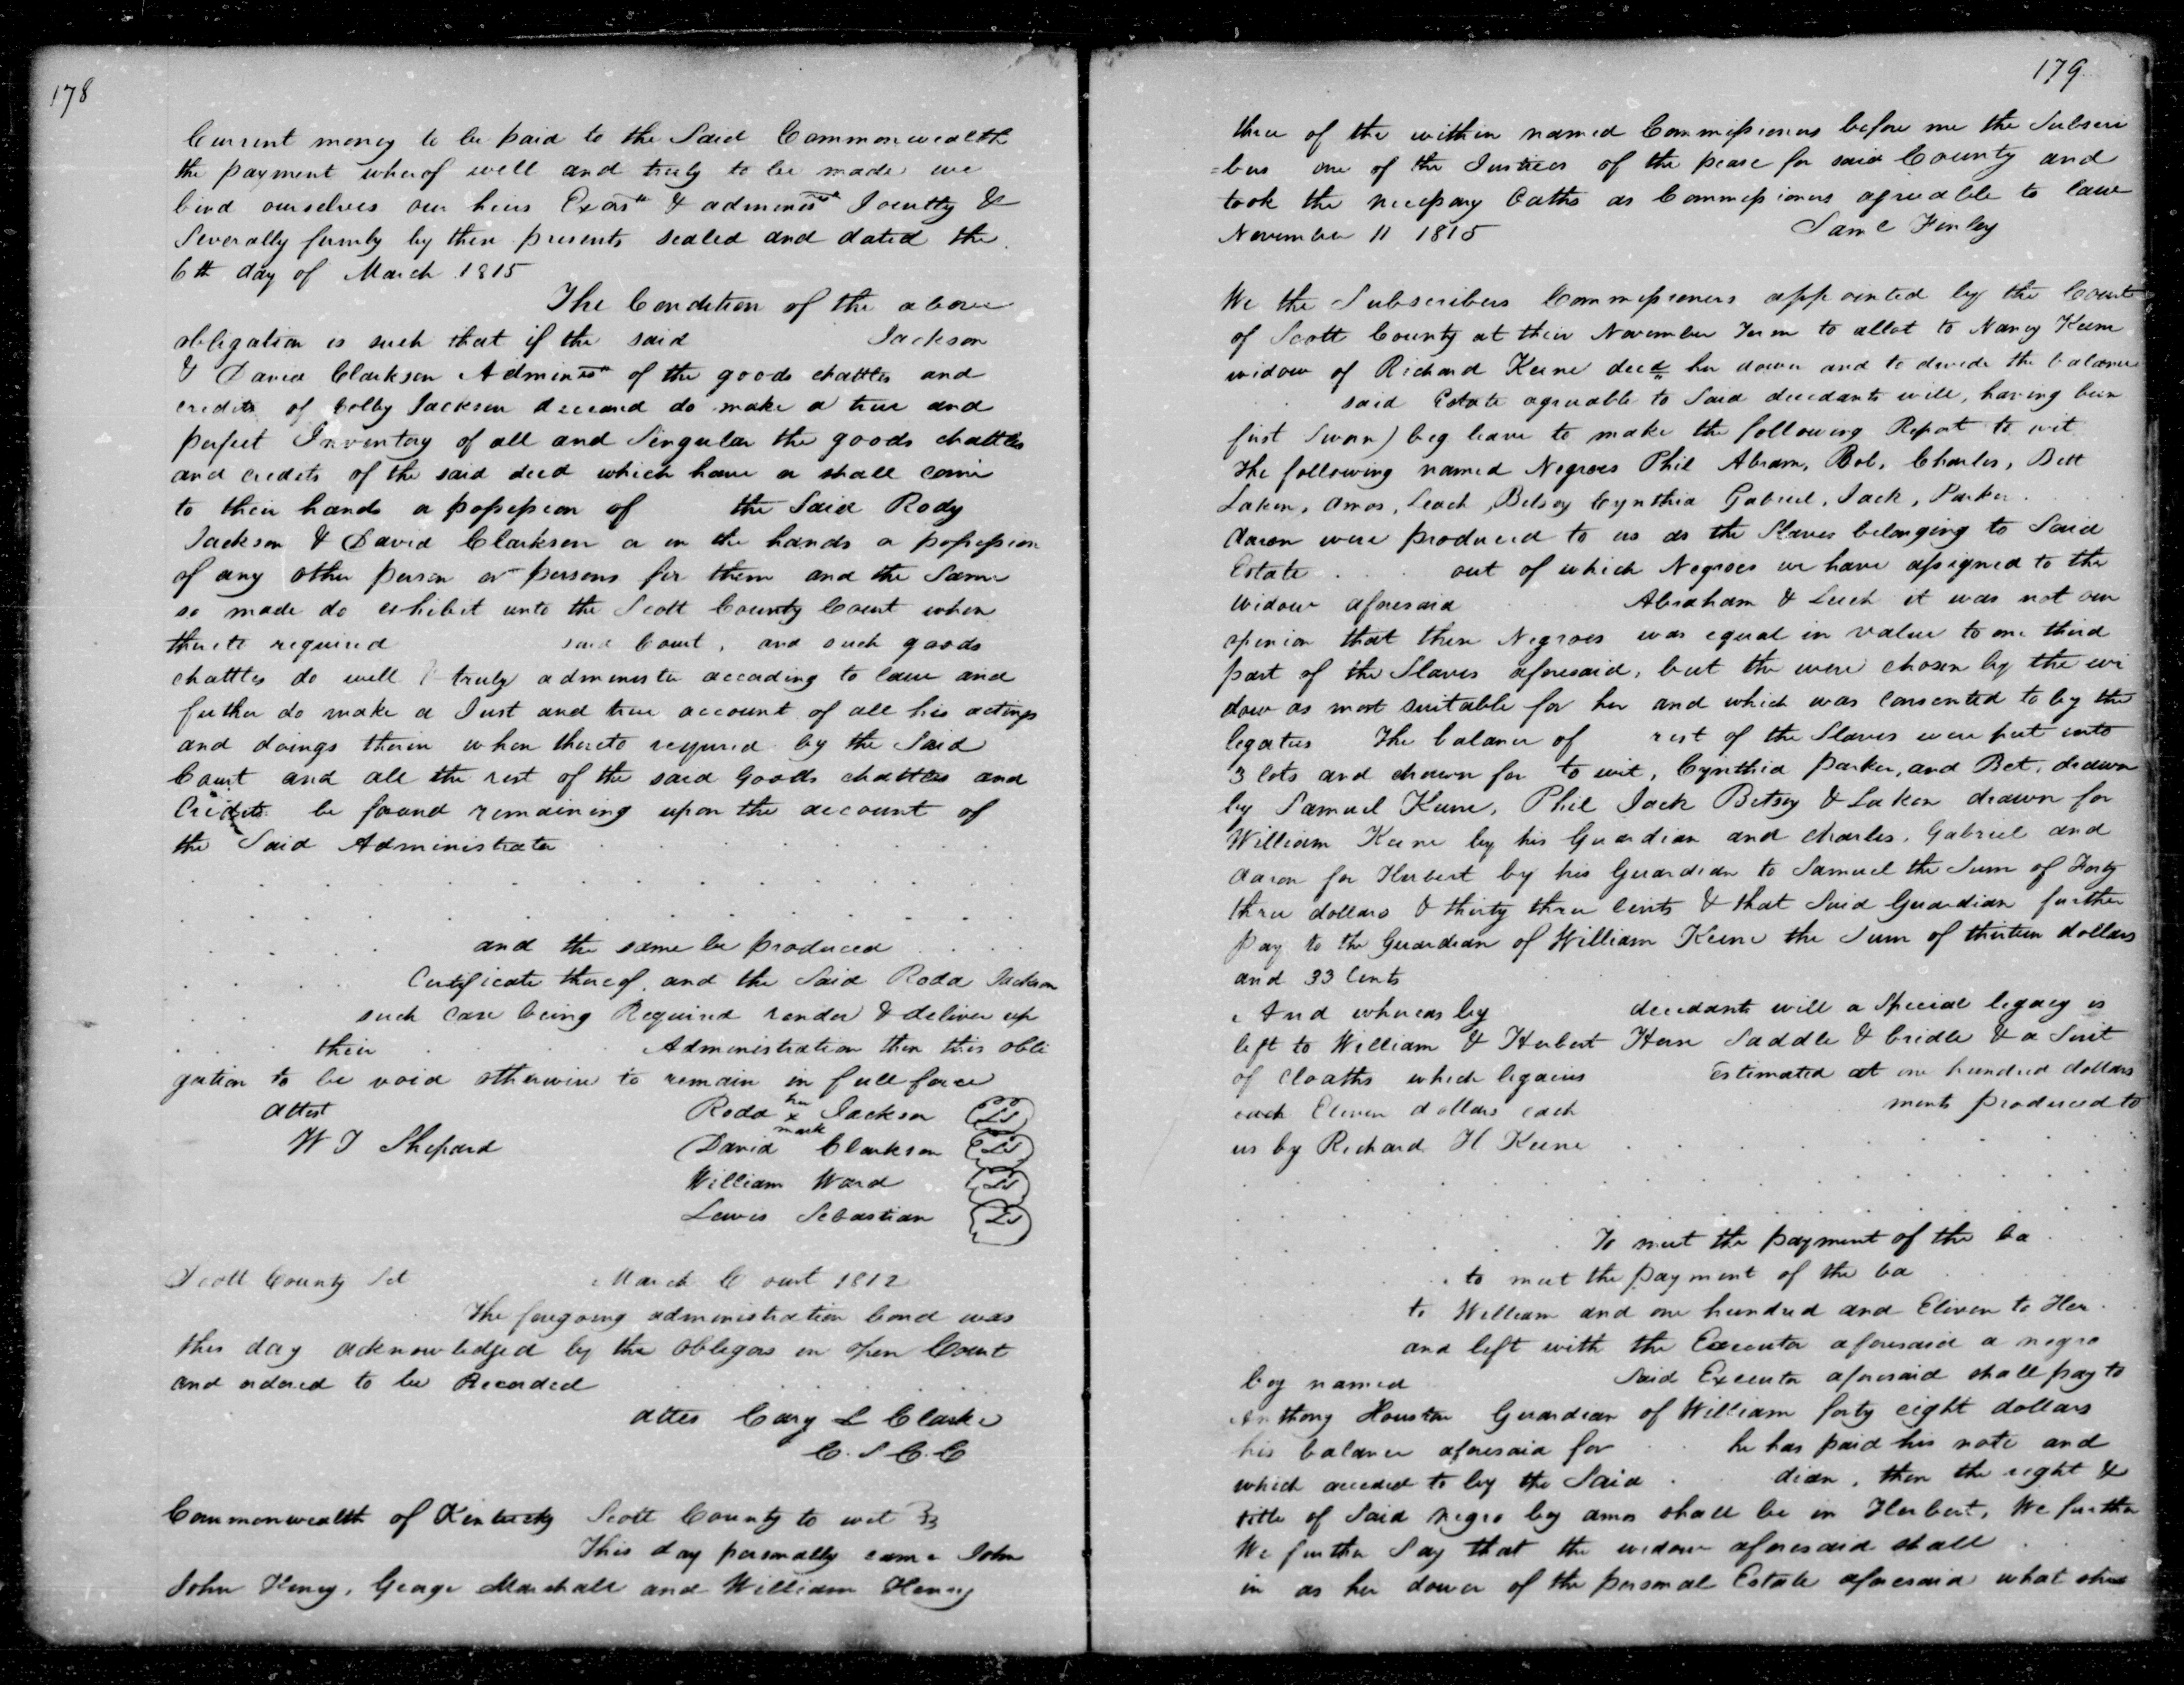 178
Current money to be paid to the Said Commonwealth
the payment wherof well and truly to be made we
bind ourselves our heirs Exors & adminis Jointly &
Severally firmly by these presents sealed and dated the
6th day of March 1815
The Condition of the above
obligation is such that if the said Jackson
& David Clarkson Adminrs of the goods chattles and
credits of Colby Jackson deceasd do make a true and
perfect Inventory of all and Singular the goods chattles
and credits of the said decd which have or shall come
to their hands or possession of the Said Rody
Jackson & David Clarkson or in the hands or possession
of any other person or persons for them and the Same
so made do exhibit unto the Scott County Court when
thereto required said Court, and such goods
chattles do well & truly administer according to law and
further do make a Just and true account of all his actings
and doings therin when thereto required by the Said
Court and all the rest of the said Goods chattles and
Credits be found remaining upon the account of
the Said Administrator
and the same be produced
Certificate thereof, and the Said Roda Jackson
such Case being Required render & deliver up
their Administration then this obli
gation to be void otherwise to remain in full force
attest Roda her x mark Jackson (LS)
W T Shepard David Clarkson (LS)
William Ward (LS)
Lewis Sebastian (LS)
Scott County Sct March Court 1812
The foregoing administration bond was
this day acknowledged by the obligors in open Court
and ordered to be Recorded
attes Cary L Clarke
C. S C. C
Commonwealth of Kentucky Scott County to wit
This day personally came John
John Henry, George Marshall and William Henry
179
three of the within named Commissioners before me the Subscri
=bers one of the Justices of the peace for said County and
took the necessary Oaths as Commissioners agreeable to law
November 11 1815 Saml Finley
We the Subscribers Commissioners appointed by the Court
of Scott County at their November Term to allot to Nancy Keene
widow of Richard Keene decd her dower and to devide the balance
said Estate agreeable to Said decedants will, having been
first Sworn) beg leave to make the following Report to wit
The following named Negroes Phil Abram, Bob, Charles, Bett
Laken, Amos, Leach, Betsey Cynthia Gabriel, Jack, Parker
Aaron were produced to us as the Slaves belonging to Said
Estate out of which Negroes we have assigned to the
widow aforesaid Abraham & Leech it was not our
opinion that these Negroes was equal in value to one third
part of the Slaves aforesaid, but the were chosen by the wi
dow as most suitable for her and which was Consented to by the
legatees The balance of rest of the Slaves were put into
3 lots and drawn for to wit, Cynthia Parker, and Bet, drawn
by Samuel Keene, Phil Jack Betsey & Laken drawn for
William Keene by his Guardian and Charles, Gabriel and
Aaron for Herbert by his Guardian to Samuel the Sum of Forty
three dollars & thirty three Cents & that Said Guardian further
pay to the Guardian of William Keene the Sum of thirteen dollars
and 33 Cents
And whereas by decedants will a Special legacy is
left to William & Herbert Horse Saddle & bridle & a Suit
of Cloaths which legacies Estimated at one hundred dollars
each Eleven dollars each ments produced to
us by Richard H Keene
To meet the payment of the ba
to meet the payment of the ba
to William and one hundred and Eleven to Her
and left with the Executor aforesaid a negro
boy named Said Executor aforesaid shall pay to
Anthony Houston Guardian of William forty eight dollars
his balance aforesaid for he has paid his note and
which acceeded to by the Said dian, then the right &
title of Said negro boy amos shall be in Herbert, We further
We further Say that the widow aforesaid shall
in as her dower of the personal Estate aforesaid what she